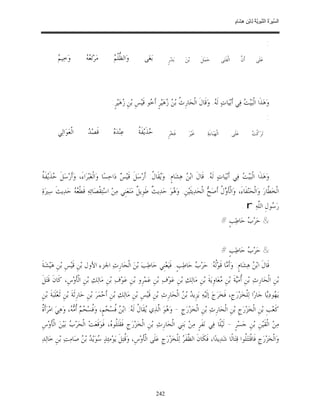 السِّيرَةُ النَّبَوِيَّةُ لِابْنِ هِشَامٍ
عَلَى أَنَّ الْفَتَى حَمَلَ بْنَ بَدْرٍ بَغَى وَالظُّلْمُ مَرْتَعُهُ وَخِيمُ
وَهَذَا الْبَيْتُ فِي أَبْيَاتٍ لَهُ. وَقَالَ الْحَارِثُ بْنُ زُهَيْرٍ أَخُو قَيْسِ بْنِ زُهَيْرٍ
تَرَكْتُ عَلَى الْهَبَاءَةِ غَيْرَ فَخْرٍ حُذَيْفَةَ عِنْدَهُ قَصْدُ الْعَوَالِي
وَهَذَا الْبَيْتُ فِي أَبْيَاتٍ لَهُ. قَالَ ابْنُ هِشَامٍ: وَيُقَالُ: أَرْسَلَ قَيْسٌ دَاحِسًا وَالْغَبْرَاءَ، وَأَرْسَلَ حُذَيْفَةُ
الْخَطَّارَ وَالْحَنْفَاءَ، وَالْأَوَّلُ أَصَحُّ الْحَدِيثَيْنِ. وَهُوَ حَدِيثٌ طَوِيلٌ مَنَعَنِي مِنْ اسْتِقْصَائِهِ قَطْعُهُ حَدِيثَ سِيرَةِ
رَسُولِ اللَّهِ r.
& حَرْبُ حَاطِبٍ #
& حَرْبُ حَاطِبٍ #
قَالَ ابْنُ هِشَامٍ: وَأَمَّا قَوْلُهُ: حَرْبُ حَاطِبٍ. فَيَعْنِي حَاطِبَ بْنَ الْحَارِثِ الجزء الأول بْنِ قَيْسِ بْنِ هَيْشَةَ
بْنِ الْحَارِثِ بْنِ أُمَيَّةَ بْنِ مُعَاوِيَةَ بْنِ مَالِكِ بْنِ عَوْفِ بْنِ عَمْرِو بْنِ عَوْفِ بْنِ مَالِكِ بْنِ الْأَوْسِ، كَانَ قَتَلَ
يَهُودِيًّا جَارًا لِلْخَزْرَجِ، فَخَرَجَ إلَيْهِ يَزِيدُ بْنُ الْحَارِثِ بْنِ قَيْسِ بْنِ مَالِكِ بْنِ أَحْمَرَ بْنِ حَارِثَةَ بْنِ ثَعْلَبَةَ بْنِ
كَعْبِ بْنِ الْخَزْرَجِ بْنِ الْحَارِثِ بْنِ الْخَزْرَجِ - وَهُوَ الَّذِي يُقَالُ لَهُ: ابْنُ فُسْحُمَ، وَفُسْحُمُ أُمُّهُ، وَهِيَ امْرَأَةٌ
مِنْ الْقَيْنِ بْنِ جَسْرٍ - لَيْلًا فِي نَفَرٍ مِنْ بَنِي الْحَارِثِ بْنِ الْخَزْرَجِ فَقَتَلُوهُ، فَوَقَعَتْ الْحَرْبُ بَيْنَ الْأَوْسِ
وَالْخَزْرَجِ فَاقْتَتَلُوا قِتَالًا شَدِيدًا، فَكَانَ الظَّفَرُ لِلْخَزْرَجِ عَلَى الْأَوْسِ، وَقُتِلَ يَوْمَئِذٍ سُوَيْدُ بْنُ صَامِتِ بْنِ خَالِدِ
242